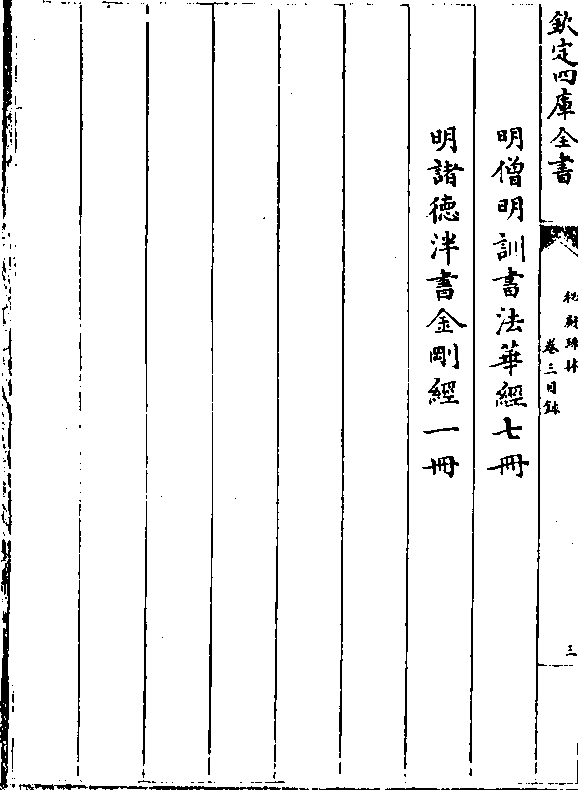 欽定四庫全書
秘殿珠林
卷三目錄
三
明僧明訓書法華經七冊
明諸德泮書金剛經一冊